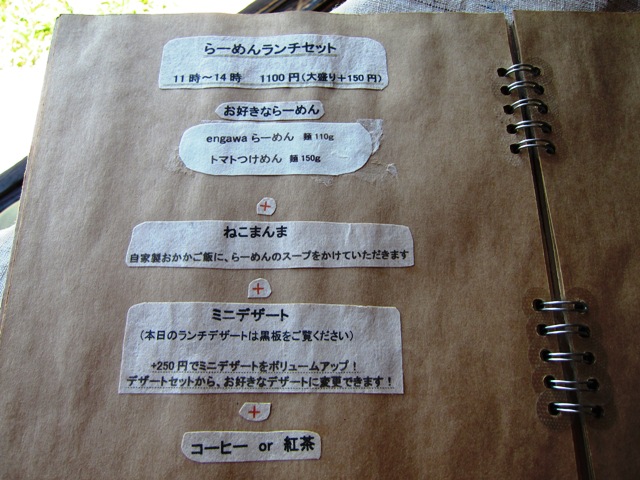 らーめんランチセット
11時～14時　1100円（大盛り＋150円）
お好きならーめん
engawaらーめん　麺110g
トマトつけめん　麺150g
+
ねこまんま
自家製おかかご飯に、らーめんのスープをかけていただきます
+
ミニデザート
（本日のランチデザートは黒板をご覧ください）
+250円でミニデザートをボリュームアップ！
デザートセットから、お好きなデザートに変更できます！
+
コーヒー　or　紅茶